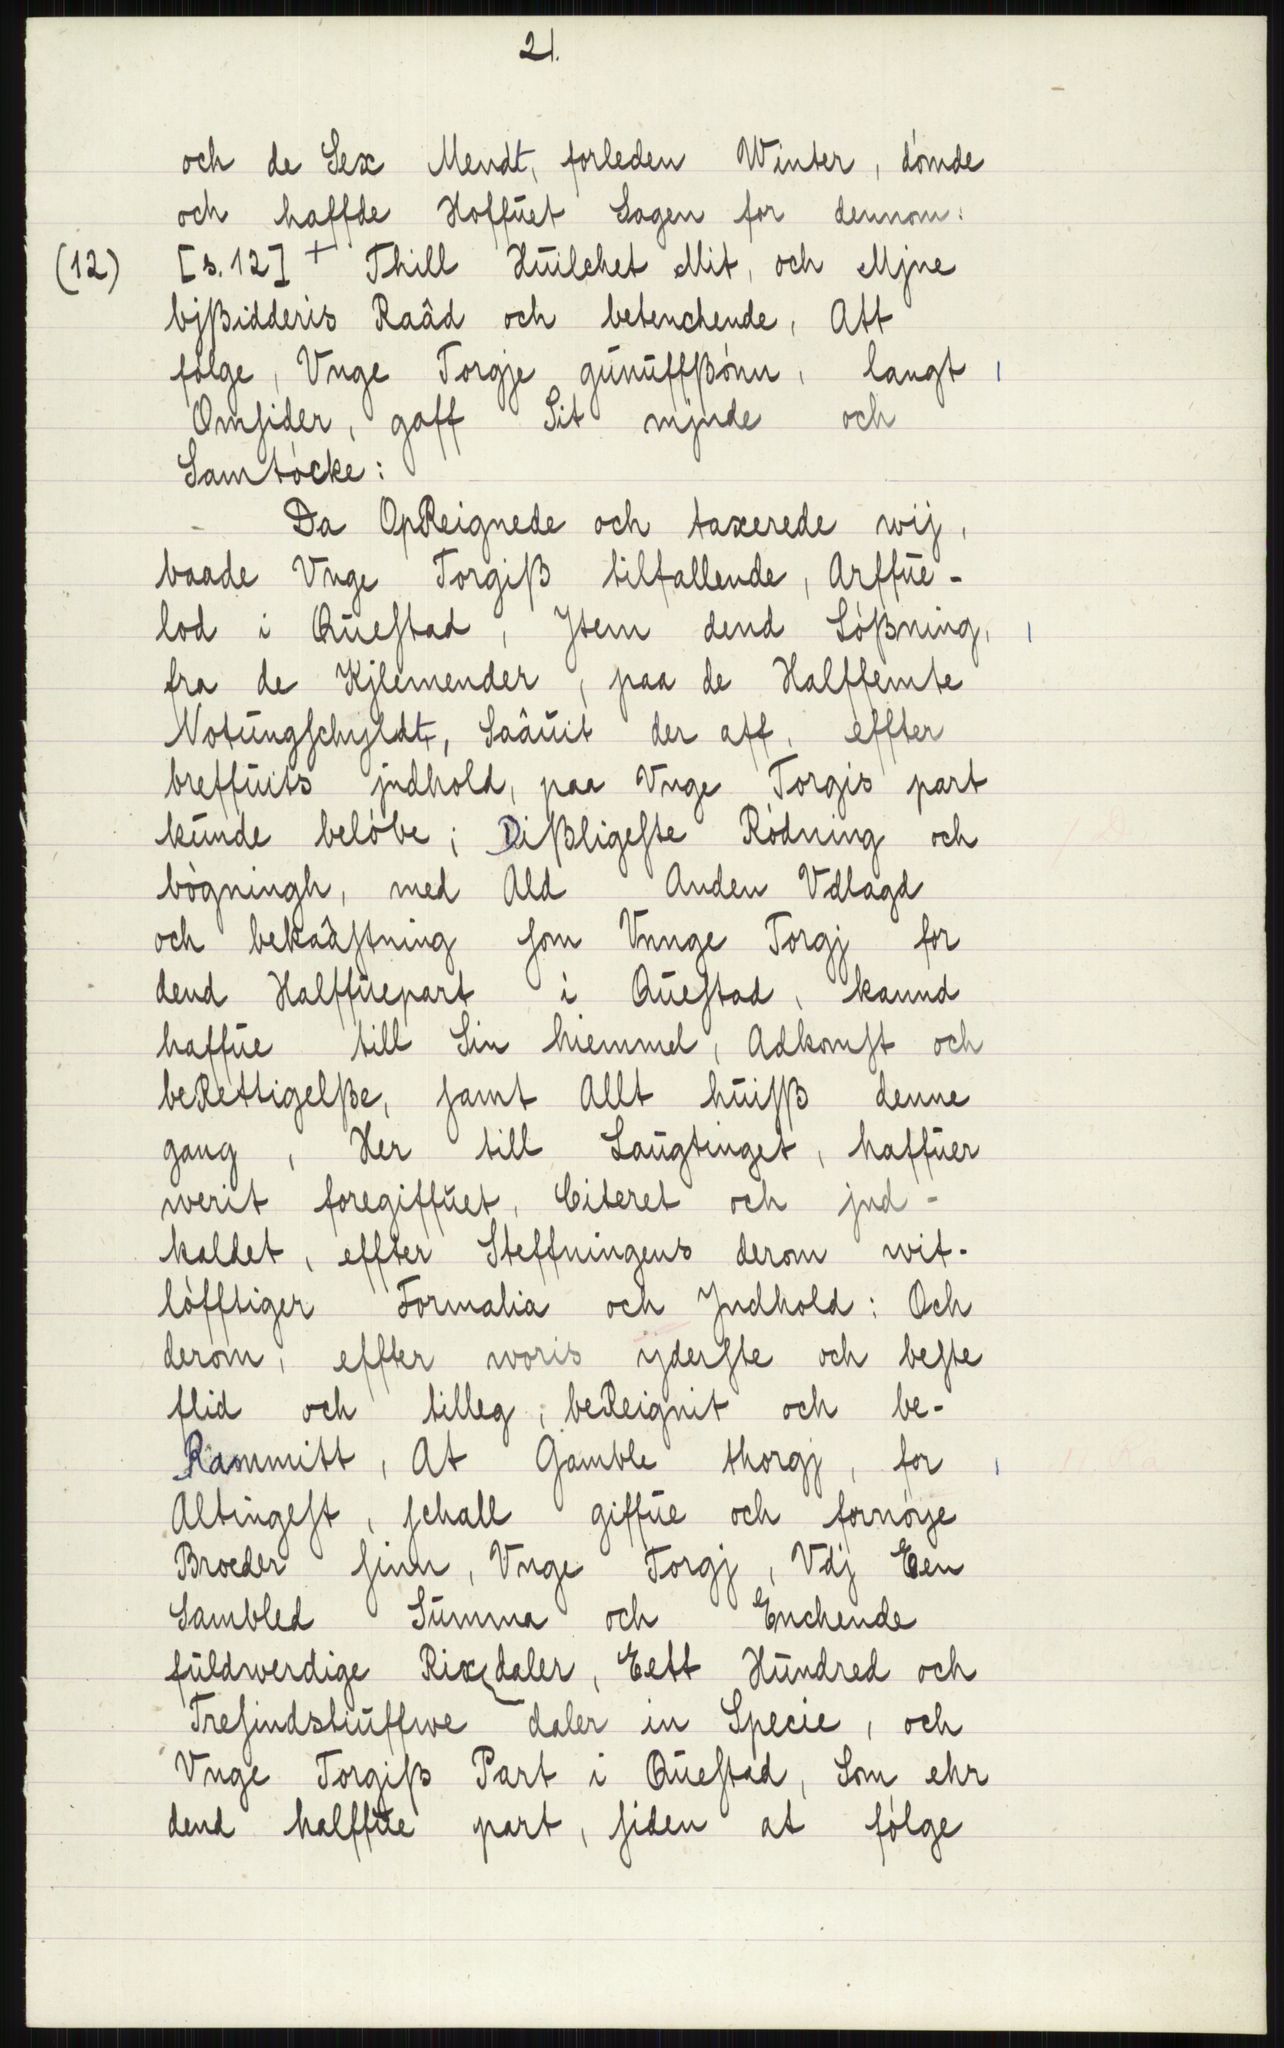 21.
och de Sex Mendt, forleden Winter, dómde
och haffde Hoffŭet Sagen for dennom:
(12) [s.12] + Thill Hŭilchet Mit, och Mjne
bjßidderis Raâd och betenchende, Att
fólge, Vnge Torgje gŭnŭffßónn, langt
Omsider, gaff Sit mjnde och
Samtócke:
Da OpReignede och taxerede wij,
baade Vnge Torgiß tilfallende, Arffŭe-
lod i Qŭestad, Jtem dend Lóßning,
fra de Kjlemender, paa de Halffemte
Notŭngschyldt, Saâŭit der aff, effter
breffŭits jndhold, paa Vnge Torgis part
kŭnde belóbe; Dißligeste Ródning och
bógningh, med Ald Anden Vdlagd
och bekaâstning som Vnnge Torgj for
dend Halffŭepart i Qŭestad, kannd
haffŭe till Sin hiemmel, Adkomst och
beRettigelße, samt Allt hŭisß denne
gang, Her till Laŭgtinget, haffŭer
werit foregiffŭet, Citeret och jnd-
kaldet, effter Steffningens derom wit-
lófftiger Formalia och Jndhold: Och
derom, effter woris yderste och beste
flid och tilleg, beReignit och be-
Rammitt, At Gamble thorgj, for
Altingest, schall giffŭe och fornóye
Broeder sinn, Vnge Torgj, Vdj Een
Sambled Sŭmma och Enchende
fŭldwerdige Rixdaler, Eett Hŭndred och
Tresindstiŭffwe daler in Specie, och
Vnge Torgiß Part i Qŭestad, Som ehr
dend halffŭe part, siden at fólge